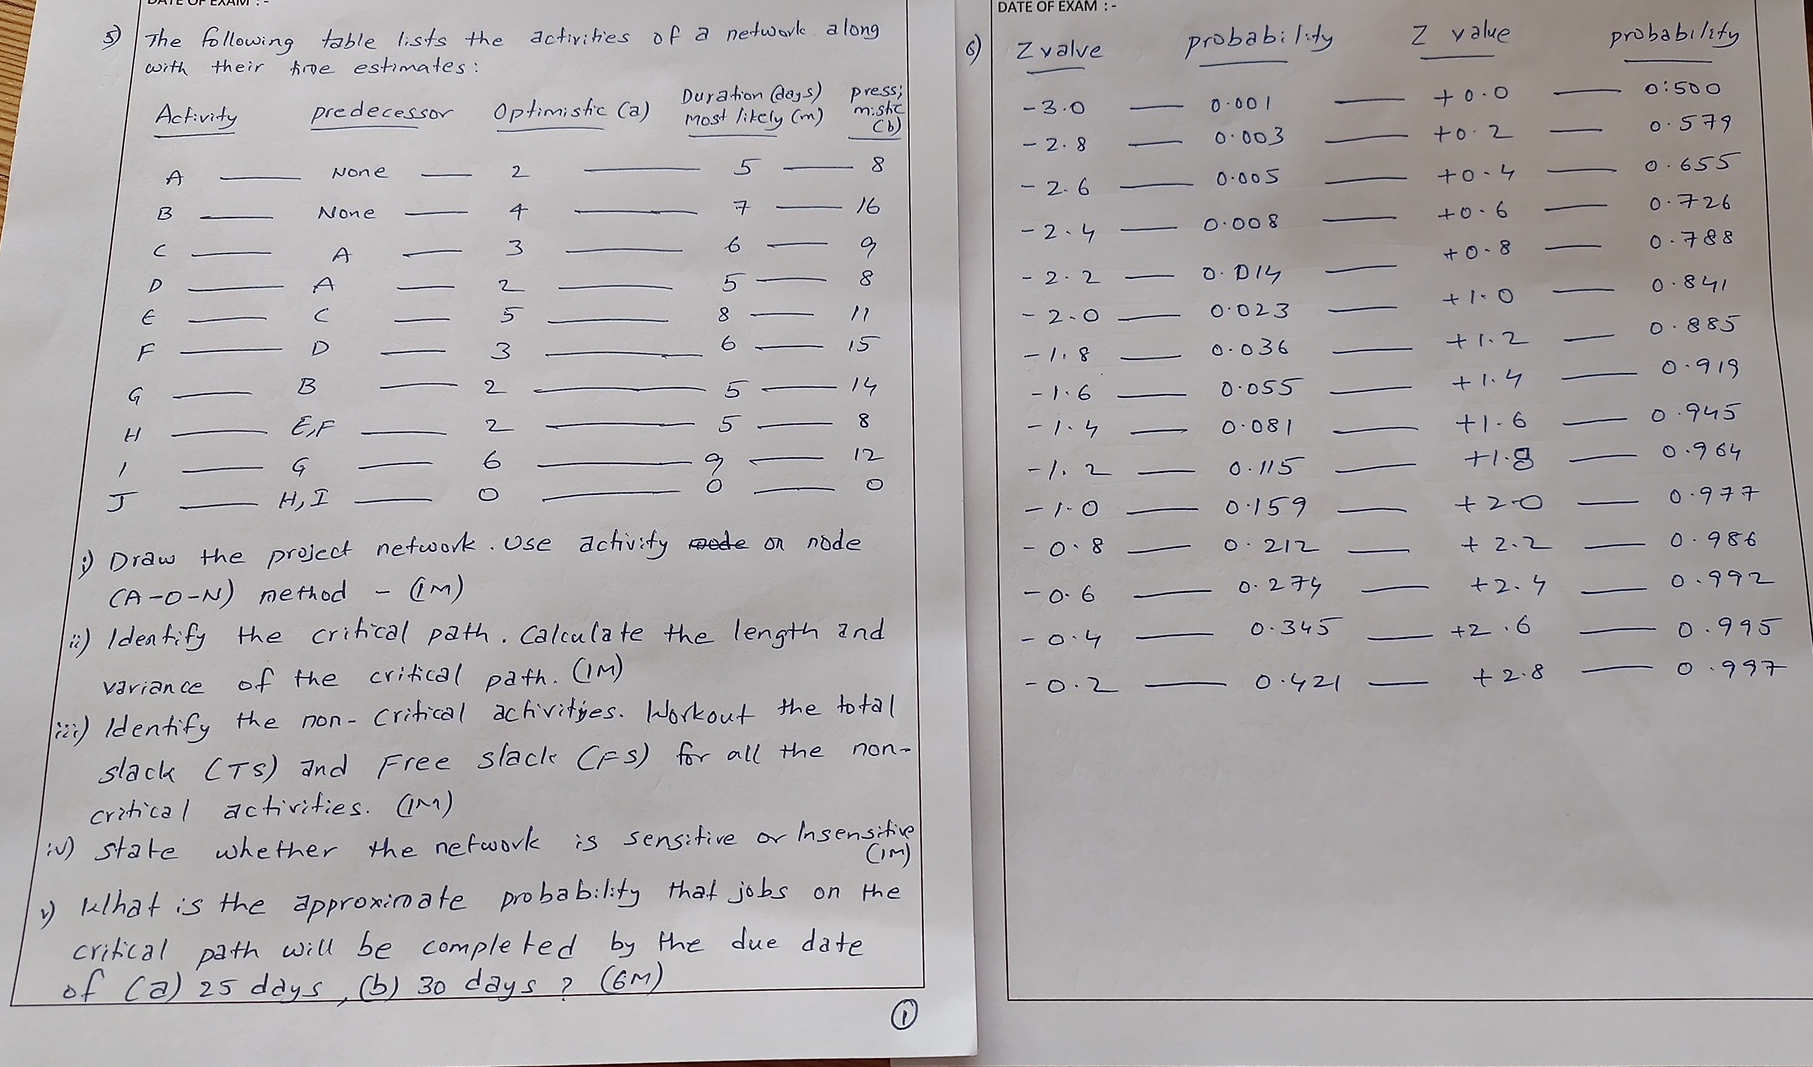 DATE OF EXAM : -
5) The following table lists the activities of a network along
with their time estimates:
Activity predecessor Optimistic (a) Duration (days) Most likely (m) pressimistic (b)
A — None — 2 — 5 — 8
B — None — 4 — 7 — 16
C — A — 3 — 6 — 9
D — A — 2 — 5 — 8
E — C — 5 — 8 — 11
F — D — 3 — 6 — 15
G — B — 2 — 5 — 14
H — E,F — 2 — 5 — 8
I — G — 6 — 9 — 12
J — H, I — 0 — 0 — 0
i) Draw the project network. Use activity on node
(A-O-N) method - (1M)
ii) Identify the critical path. Calculate the length and
variance of the critical path. (1M)
iii) Identify the non-critical activities. Workout the total
slack (TS) and Free slack (FS) for all the non-
critical activities. (1M)
iv) State whether the network is sensitive or Insensitive
(1M)
v) What is the approximate probability that jobs on the
critical path will be completed by the due date
of (a) 25 days, (b) 30 days ? (6M)
1
DATE OF EXAM : -
6) Z valve probability Z value probability
-3.0 — 0.001 — +0.0 — 0.500
-2.8 — 0.003 — +0.2 — 0.579
-2.6 — 0.005 — +0.4 — 0.655
-2.4 — 0.008 — +0.6 — 0.726
-2.2 — 0.014 — +0.8 — 0.788
-2.0 — 0.023 — +1.0 — 0.841
-1.8 — 0.036 — +1.2 — 0.885
-1.6 — 0.055 — +1.4 — 0.919
-1.4 — 0.081 — +1.6 — 0.945
-1.2 — 0.115 — +1.8 — 0.964
-1.0 — 0.159 — +2.0 — 0.977
-0.8 — 0.212 — +2.2 — 0.986
-0.6 — 0.274 — +2.4 — 0.992
-0.4 — 0.345 — +2.6 — 0.995
-0.2 — 0.421 — +2.8 — 0.997